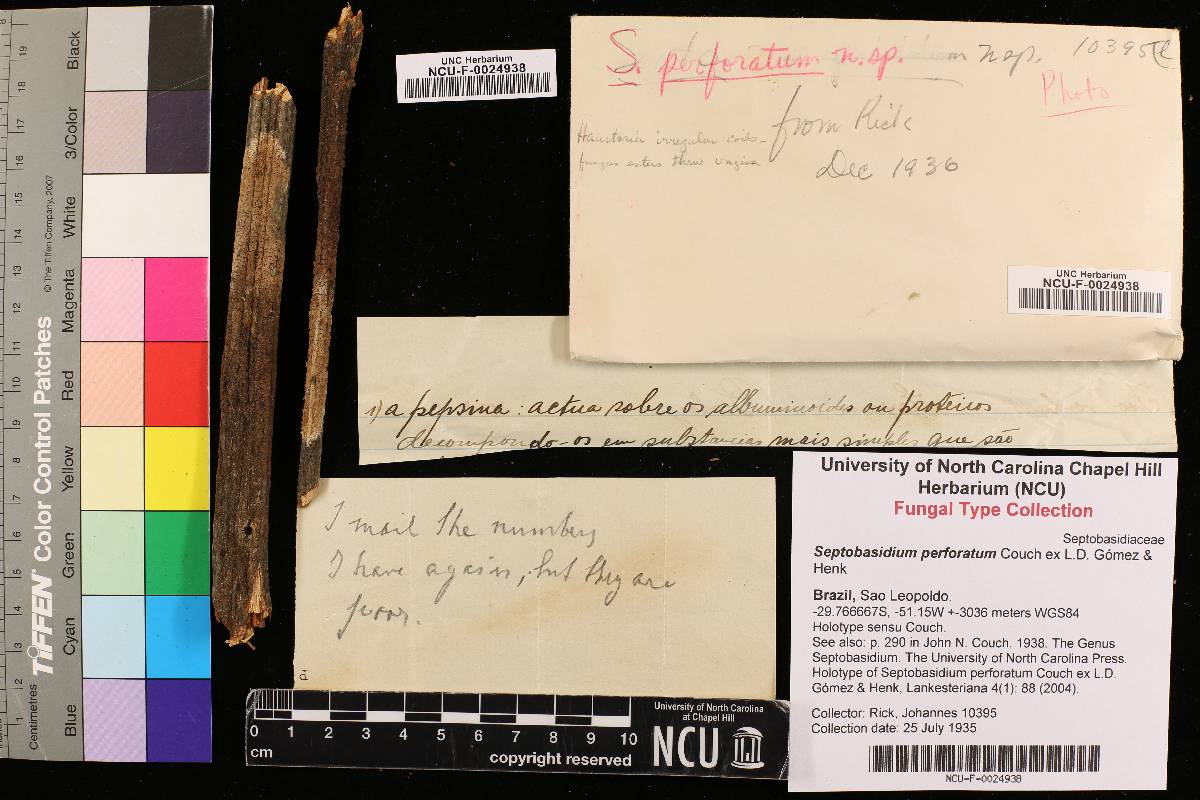 UNC Herbarium
NCU-F-0024938
S. perforatum n.sp. n sp. 10395
Photo
from Rick
Dec 1936
Haustoria irregular coils-
fungus enters thru vagina
UNC Herbarium
NCU-F-0024938
1) a pepsina : actua sobre os albuminoides ou proteicos
decompondo-os em substancias mais simples que são
I mail the numbers
I have again, but they are
poor.
University of North Carolina Chapel Hill
Herbarium (NCU)
Fungal Type Collection
Septobasidiaceae
Septobasidium perforatum Couch ex L.D. Gómez &
Henk
Brazil, Sao Leopoldo.
-29.766667S, -51.15W +-3036 meters WGS84
Holotype sensu Couch.
See also: p. 290 in John N. Couch. 1938. The Genus
Septobasidium. The University of North Carolina Press.
Holotype of Septobasidium perforatum Couch ex L.D.
Gómez & Henk, Lankesteriana 4(1): 88 (2004).
Collector: Rick, Johannes 10395
Collection date: 25 July 1935
NCU-F-0024938
0 1 2 3 4 5 6 7 8 9 10
cm
copyright reserved
University of North Carolina
at Chapel Hill
NCU
TIFFEN Color Control Patches
© The Tiffen Company, 2007
Centimetres
1 2 3 4 5 6 7 8 9 10 11 12 13 14 15 16 17 18 19
Blue
Cyan
Green
Yellow
Red
Magenta
White
3/Color
Black